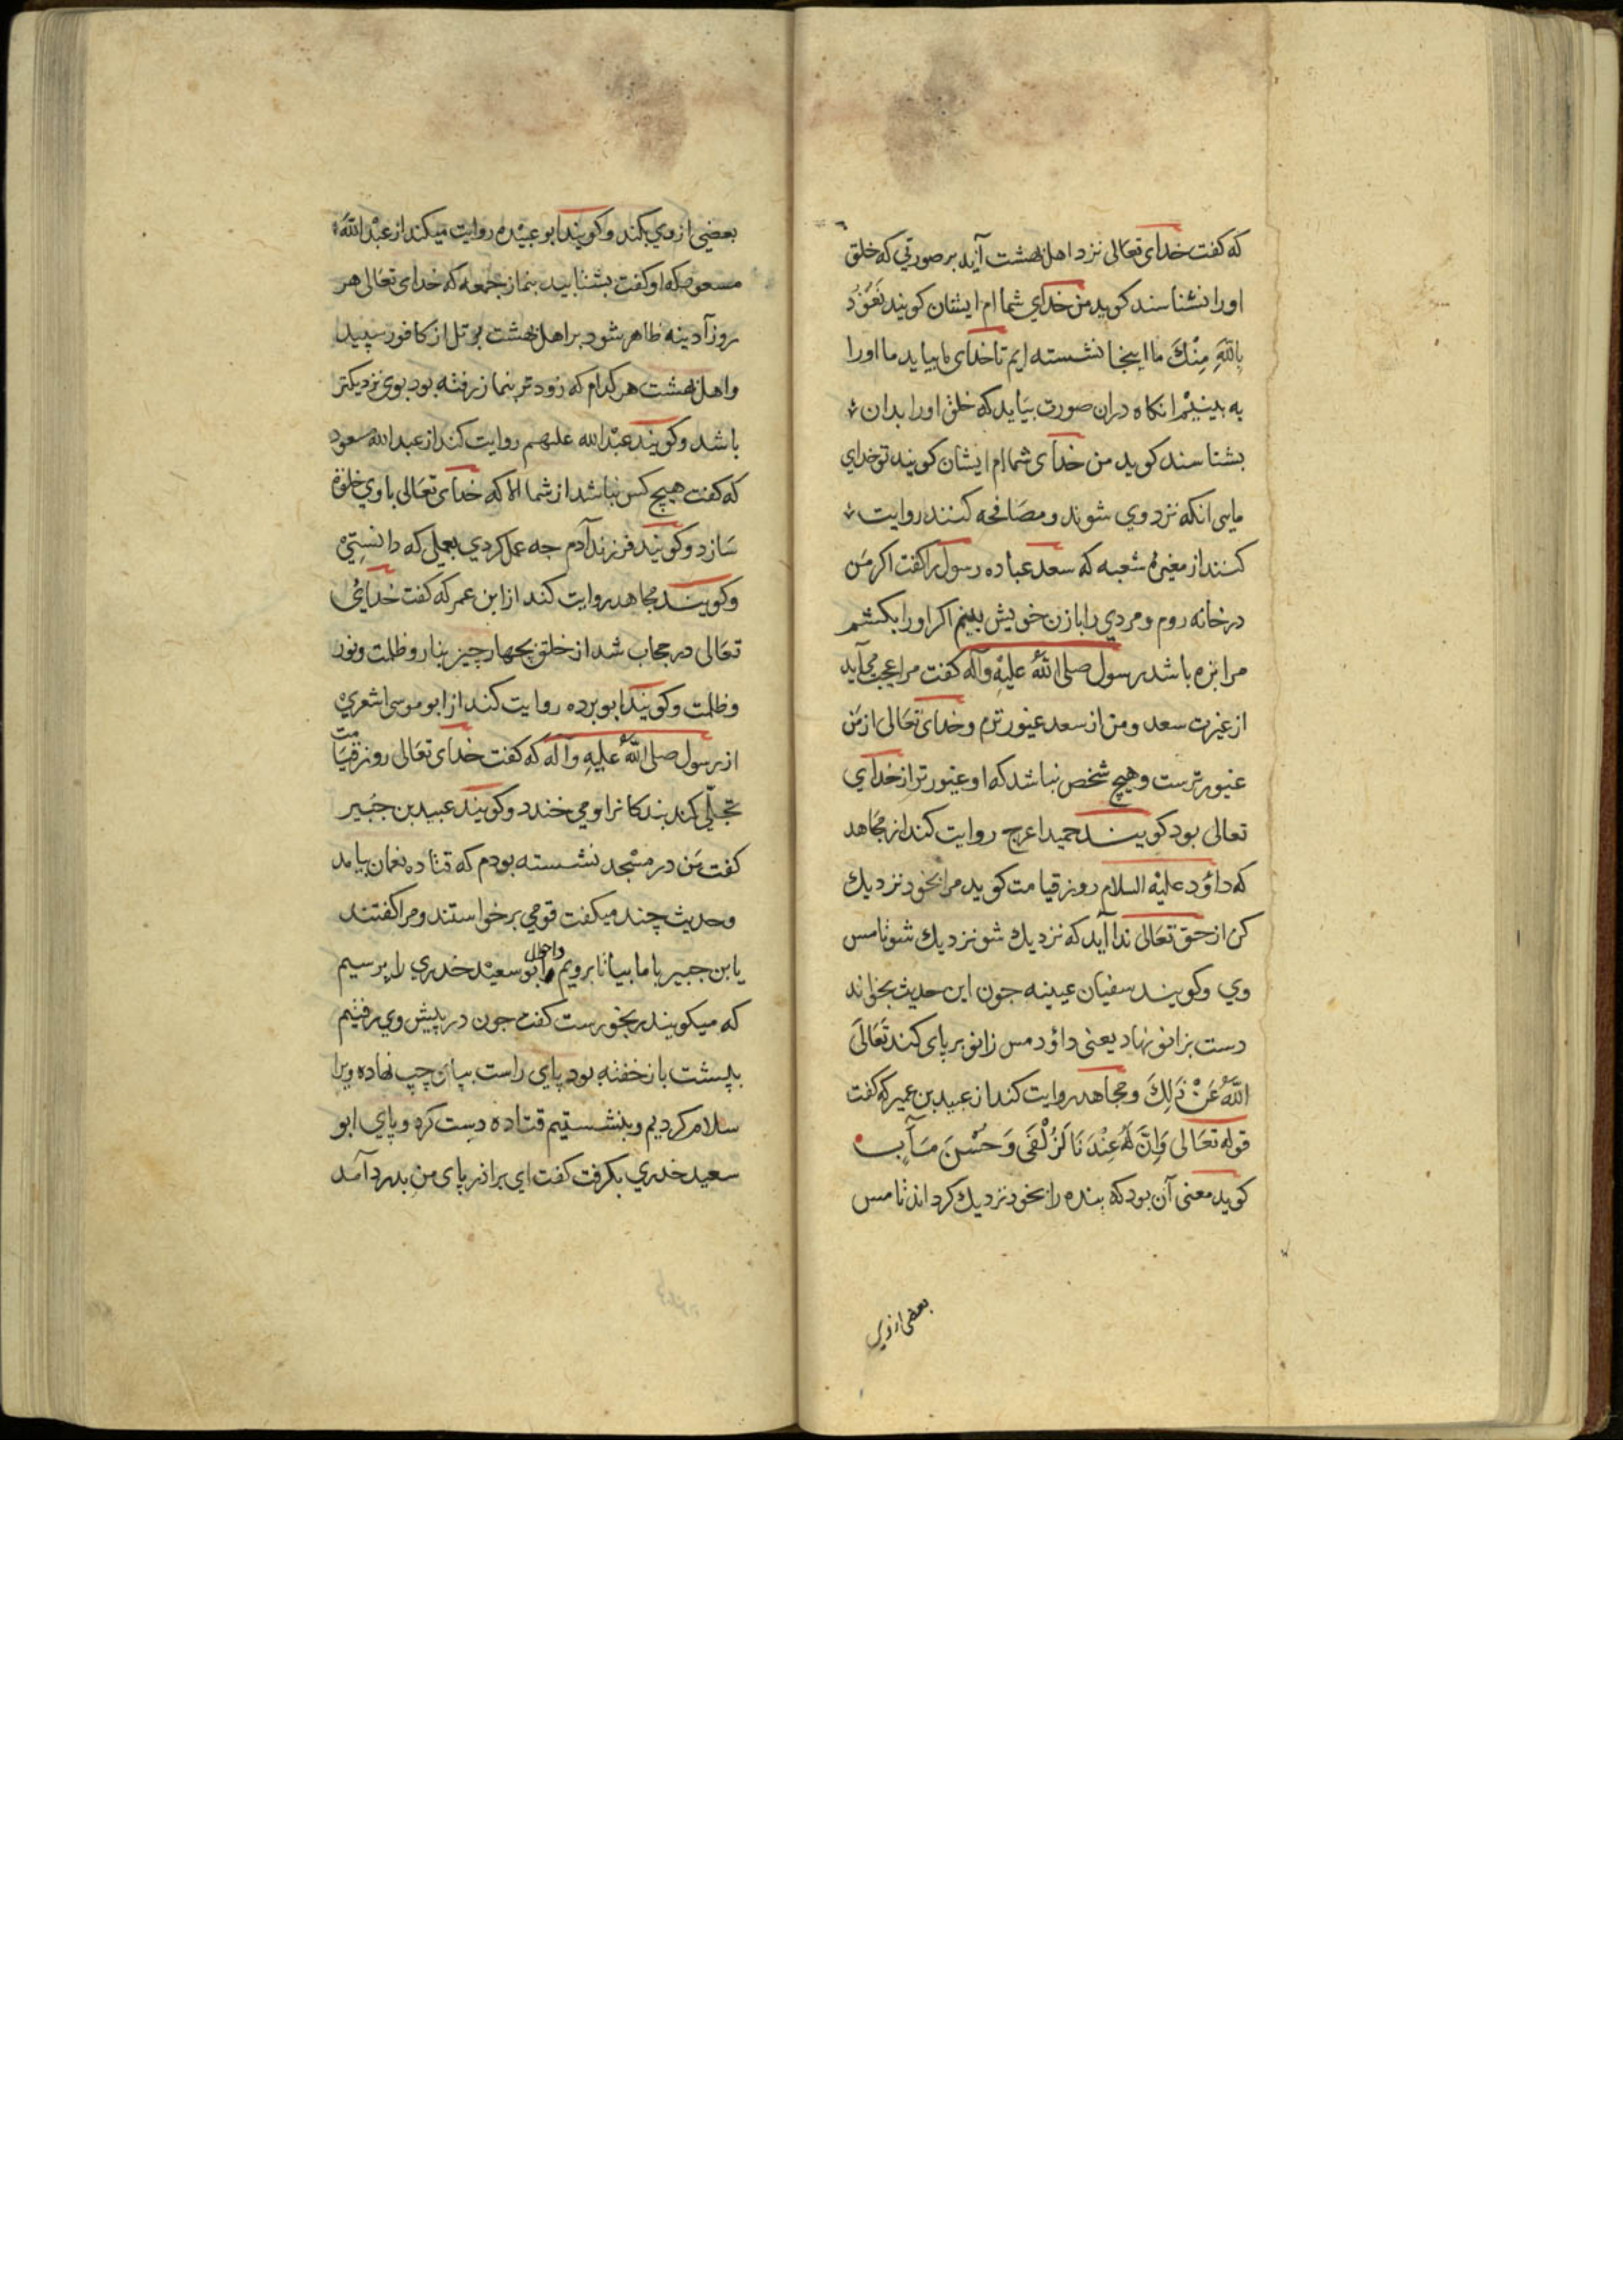 که کفت خدای تعالی نزد اهل بهشت آید بر صورتی که خلق
اورا نشناسند کوید من خدای شما ام ایشان کویند نَعُوْذُ
بِاللّٰهِ مِنْكَ ما اینجا نشسته ایم تا خدای ما بیاید ما اورا
به بینیم انکاه دران صورت بیاید که خلق اورا بدان
بشناسند کوید من خدای شما ام ایشان کویند تو خدای
مایی انکه نزد وي شوند و مصافحه کنند روایت
کنند از مغیرهٔ شعبه که سعد عباده رسول را کفت اکر من
در خانه روم و مردي را با زن خویش بینم اکر اورا بکشم
مرا بزه باشد رسول صلی اللّٰه علیه وآله کفت مرا عجب می آید
از غیرت سعد و من از سعد غیور ترم و خدای تعالی از من
غیور ترست و هیچ شخص نباشد که او غیور تر از خدای
تعالی بود کویند حمید اعرج روایت کند از مجاهد
که داؤد علیه السلام روز قیامت کوید مرا بخود نزدیك
کن از حق تعالی ندا آید که نزدیك شو نزدیك شو تا مس
وي وکویند سفیان عیینه جون این حدیث بخواند
دست بزانو نهاد یعنی داؤد مس زانو بر پای کند تَعَالَی
اللّٰهُ عَنْ ذٰلِكَ ومجاهد روایت کند از عبید بن عمیر که کفت
قوله تعالی وَاِنَّ لَهُ عِنْدَنَا لَزُلْفَى وَحُسْنَ مَآبٍ
کوید معنی آن بود که بنده را بخود نزدیك کرداند تا مس
بعضی از وی
بعضي از وي بکند وکویند ابو عبیده روایت میکند از عبد اللّٰه
مسعود که او کفت بشتابید بنماز جمعه که خدای تعالی هر
روز آدینه ظاهر شود بر اهل بهشت بر تل از کافور سپید
واهل بهشت هر کدام که زود تر بنماز رفته بود بوی نزدیکتر
باشد وکویند عبد الله علیهم روایت کند از عبد الله مسعود
که کفت هیچ کس نباشد از شما الا که خدای تعالی با وي خلوة
سازد وکویند فرزند آدم جه عمل کردي بعملی که دانستی
وکویند مجاهد روایت کند از ابن عمر که کفت خدای
تعالی در حجاب شد از خلق بچهار چیز بنار وظلمت ونور
وظلمت وکویند ابو برده روایت کند از ابو موسی اشعري
از رسول صلی اللّٰه علیه وآله که کفت خدای تعالی روز قیامت
تجلّی کند بندکانرا و می خندد وکویند عبید بن جبیر
کفت من در مسجد نشسته بودم که قتاده نعمان بیامد
وحدیث چند میکفت قومي برخواستند ومرا کفتند
یا بن جبیر با ما بیا تا برویم واحوال ابو سعید خدري را پرسیم
که میکویند رنجورست کفت جون در پیش وي رفتیم
بپشت باز خفته بود پای راست بپای چپ نهاده ویرا
سلام کردیم وبنشستیم قتاده دست کرد و پاي ابو
سعید خدري بکرفت کفت اي برادر پای من بدرد آمد